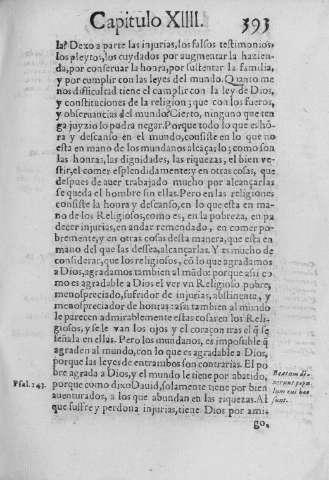 Capitulo XIIII. 393
la? Dexo a parte las injurias, los falsos testimonios,
los pleytos, los cuydados por augmentar la hazien-
da, por conseruar la honra, por sustentar la familia,
y por cumplir con las leyes del mundo. Quanto me
nos difficultad tiene el cumplir con la ley de Dios,
y constituciones de la religion; que con los fueros,
y obseruancias del mundo? Cierto, ninguno que ten
ga juyzio lo podra negar. Porque todo lo que es hõ
ra y descanso en el mundo, consiste en lo que no
esta en mano de los mundanos alcãçarlo; como son
las honras, las dignidades, las riquezas, el bien ve-
stir, el comer esplendidamente: y en otras cosas, que
despues de auer trabajado mucho por alcançarlas
se queda el hombre sin ellas. Pero en las religiones
consiste la honra y descanso, en lo que esta en ma-
no de los Religiosos, como es, en la pobreza, en pa
decer injurias, en andar remendado, en comer po-
bremente, y en otras cosas desta manera, que esta en
mano del que las dessea, alcançarlas. Y es mucho de
considerar, que los religiosos, cõ lo que agradamos
a Dios, agradamos tambien al mũdo: porque assi co
mo es agradable a Dios el ver vn Religioso pobre,
menospreciado, sufridor de injurias, abstinente, y
menospreciador de honras: assi tambien al mundo
le parecen admirablemente estas cosas en los Reli-
giosos, y se le van los ojos y el coraçon tras el q̃ se
señala en ellas. Pero los mundanos, es impossible q̃
agraden al mundo, con lo que es agradable a Dios,
porque las leyes de entrambos son contrarias. El po
bre agrada a Dios, y el mundo le tiene por abatido,
porque como dixo Dauid, solamente tiene por bien
auenturados, a los que abundan en las riquezas. Al
que suffre y perdona injurias, tiene Dios por ami-
go,
Psal. 143.
Beatum di-
xerunt popu
lum cui hæc
sunt.